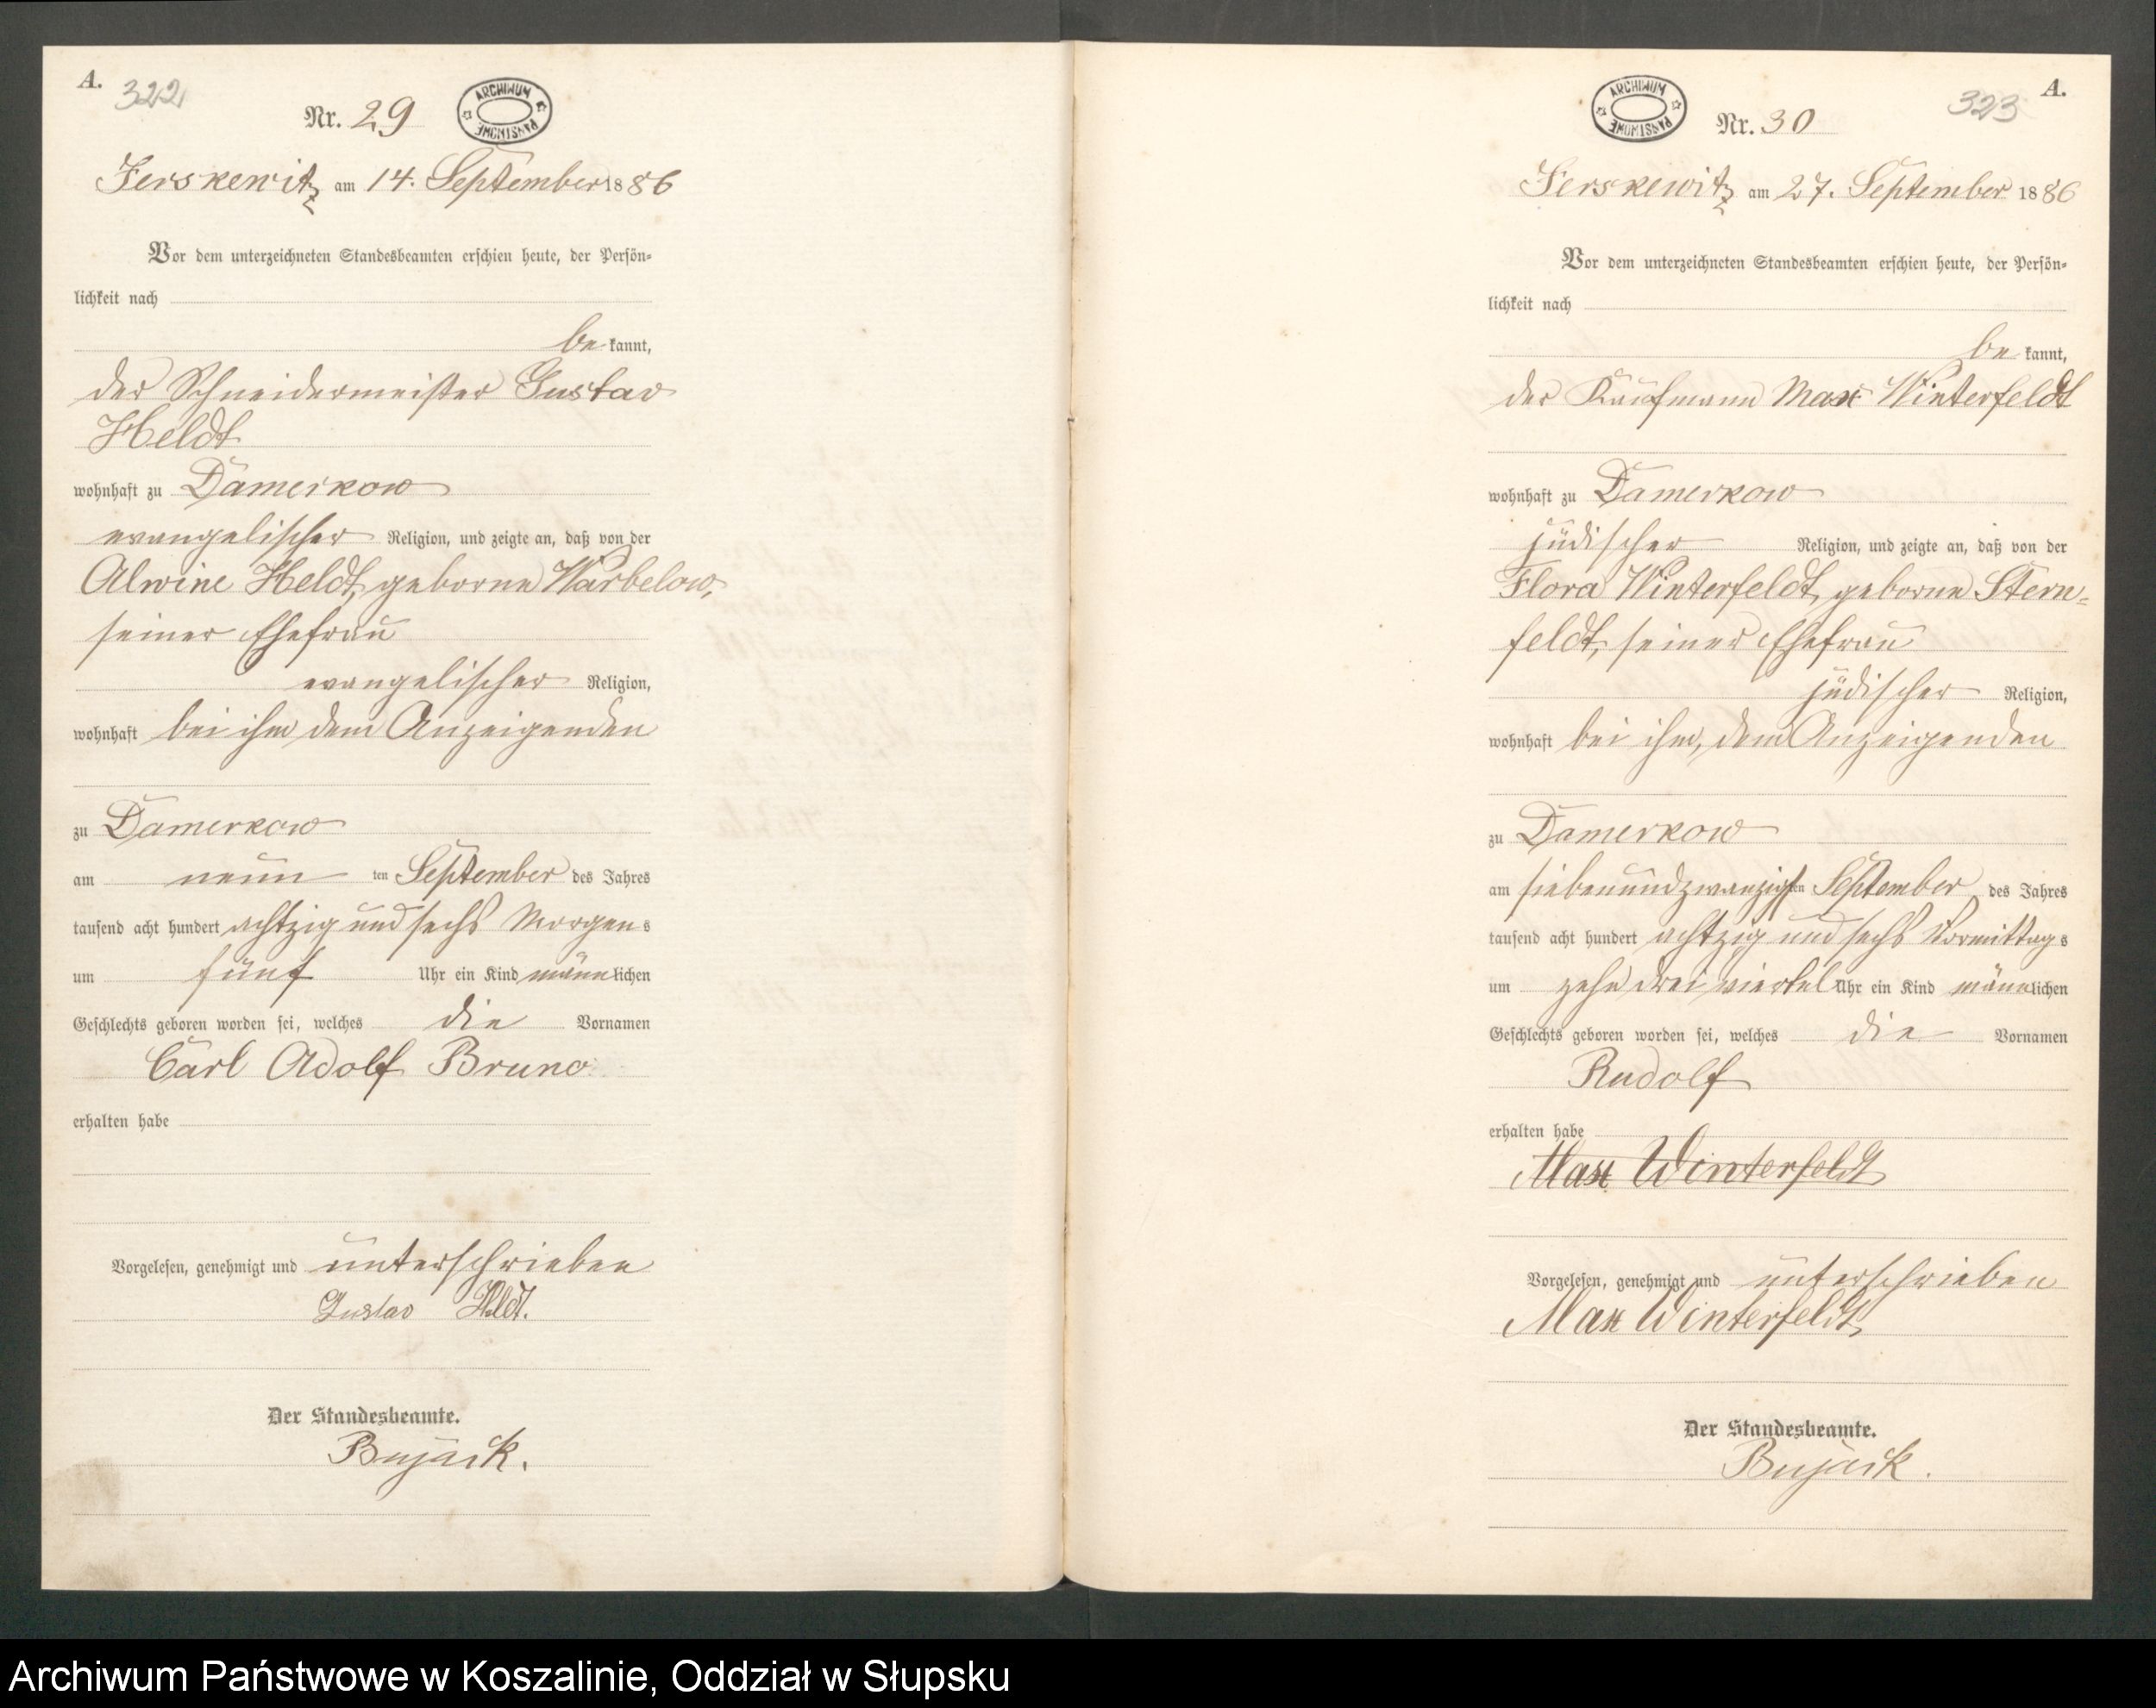 A.
322
Nr. 29
ARCHIWUM PAŃSTWOWE
Jerskewitz am 14. September 1886
Vor dem unterzeichneten Standesbeamten erschien heute, der Persön-
lichkeit nach
be kannt,
der Schneidermeister Gustav
Heldt
wohnhaft zu Damerkow
evangelischer Religion, und zeigte an, daß von der
Alwine Heldt, geborne Warbelow,
seiner Ehefrau
evangelischer Religion,
wohnhaft bei ihm dem Anzeigenden
zu Damerkow
am neun ten September des Jahres
tausend acht hundert achtzig und sechs Morgens
um fünf Uhr ein Kind männlichen
Geschlechts geboren worden sei, welches die Vornamen
Carl Adolf Bruno
erhalten habe
Vorgelesen, genehmigt und unterschrieben
Gustav Heldt.
Der Standesbeamte.
Bujack.
A.
323
ARCHIWUM PAŃSTWOWE
Nr. 30
Jerskewitz am 27. September 1886
Vor dem unterzeichneten Standesbeamten erschien heute, der Persön-
lichkeit nach
be kannt,
der Kaufmann Max Winterfeldt
wohnhaft zu Damerkow
jüdischer Religion, und zeigte an, daß von der
Flora Winterfeldt, geborne Stern-
feldt, seiner Ehefrau
jüdischer Religion,
wohnhaft bei ihm, dem Anzeigenden
zu Damerkow
am siebenundzwanzigsten September des Jahres
tausend acht hundert achtzig und sechs Vormittags
um zehn drei viertel Uhr ein Kind männlichen
Geschlechts geboren worden sei, welches die Vornamen
Rudolf
erhalten habe
Max Winterfeldt
Vorgelesen, genehmigt und unterschrieben
Max Winterfeldt
Der Standesbeamte.
Bujack.
Archiwum Państwowe w Koszalinie, Oddział w Słupsku